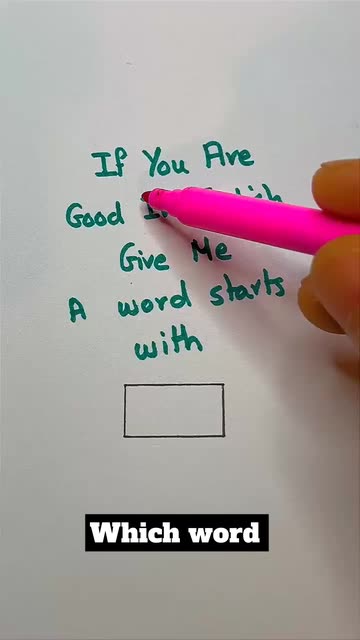 If You Are
Good In
Give Me
A word starts
with
Which word